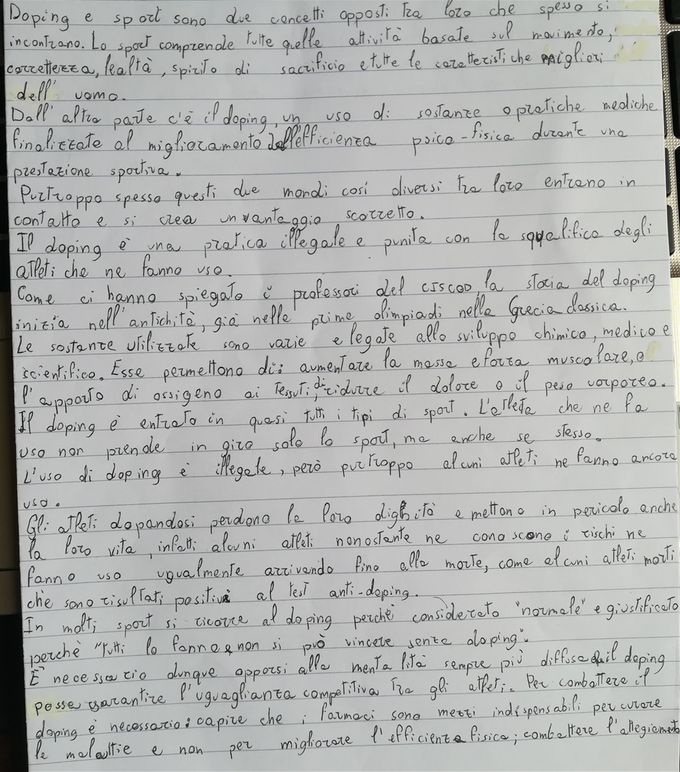 Doping e sport sono due concetti opposti tra loro che spesso si
incontrano. Lo sport comprende tutte quelle attività basate sul movimento,
correttezza, lealtà, spirito di sacrificio e tutte le caratteristiche migliori
dell' uomo.
Dall' altra parte c'è il doping, un uso di sostanze o pratiche mediche
finalizzate al miglioramento dell'efficienza psico-fisica durante una
prestazione sportiva.
Purtroppo spesso questi due mondi così diversi tra loro entrano in
contatto e si crea un vantaggio scorretto.
Il doping è una pratica illegale e punita con la squalifica degli
atleti che ne fanno uso.
Come ci hanno spiegato i professori del la storia del doping
inizia nell'antichità, già nelle prime olimpiadi nella Grecia classica.
Le sostanze utilizzate sono varie e legate allo sviluppo chimico, medico e
scientifico. Esse permettono di: aumentare la massa e forza muscolare, o
l'apporto di ossigeno ai tessuti; di ridurre il dolore o il peso corporeo.
Il doping è entrato in quasi tutti i tipi di sport. L'atleta che ne fa
uso non prende in giro solo lo sport, ma anche se stesso.
L'uso di doping è illegale, però purtroppo alcuni atleti ne fanno ancora
uso.
Gli atleti dopandosi perdono la loro dignità e mettono in pericolo anche
la loro vita, infatti alcuni atleti nonostante ne conoscono i rischi ne
fanno uso ugualmente arrivando fino alla morte, come alcuni atleti morti
che sono risultati positivi al test anti-doping.
In molti sport si ricorre al doping perchè considerato "normale" e giustificato
perchè "tutti lo fanno e non si può vincere senza doping".
È necessario dunque opporsi alla mentalità sempre più diffusa il doping
possa garantire l'uguaglianza competitiva tra gli atleti. Per combattere il
doping è necessario: capire che i farmaci sono mezzi indispensabili per curare
le malattie e non per migliorare l'efficienza fisica; combattere l'